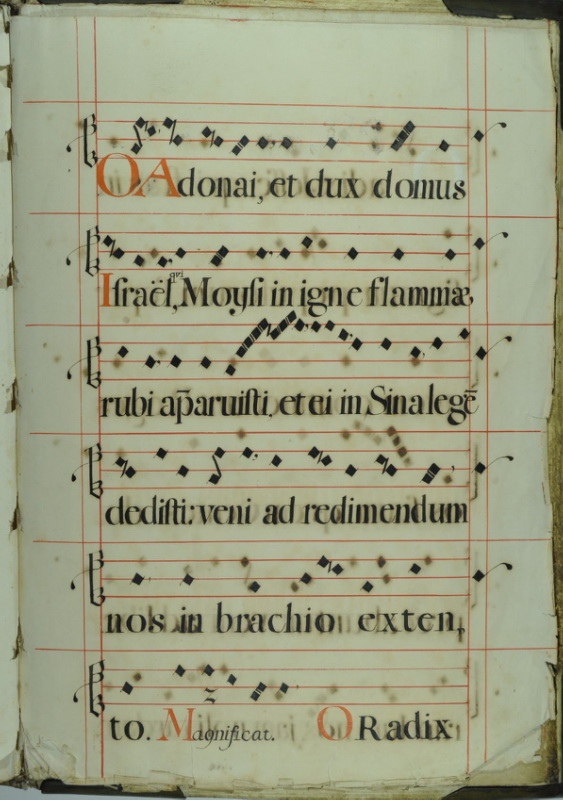 O Adonai, et dux domus
Israël, qui Moysi in igne flammæ,
rubi ap̄aruisti, et ei in Sina legē
dedisti: veni ad redimendum
nos in brachio exten,
to. Magnificat. O Radix